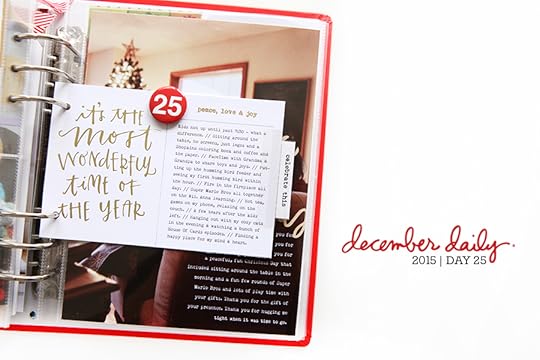 it's THE
most
WONDERFUL
TIME OF
THE YEAR
25
peace, love & joy
Kids not up until past 7:30 - what a
difference. // Sitting around the
table, no screens, just legos and a
Shopkins coloring book and coffee and
the paper. // FaceTime with Grandma &
Grandpa to share toys and joys. // Put-
ting up the humming bird feeder and
seeing my first humming bird within
the hour. // Fire in the fireplace all
day. // Super Mario Bros all together
on the Wii. Anna learning. // hot tea,
games on my phone, relaxing on the
couch. // a few tears after the kids
left. // Hanging out with my cozy cats
in the evening & watching a bunch of
House Of Cards episodes. // Finding a
happy place for my mind & heart.
celebrate this
you for
you for
a peaceful, fun Christmas Day that
included sitting around the table in the
morning and a fun few rounds of Super
Mario Bros and lots of play time with
your gifts. Thank you for the gift of
your presence. Thank you for hugging so
tight when it was time to go.
december daily.
2015 | DAY 25